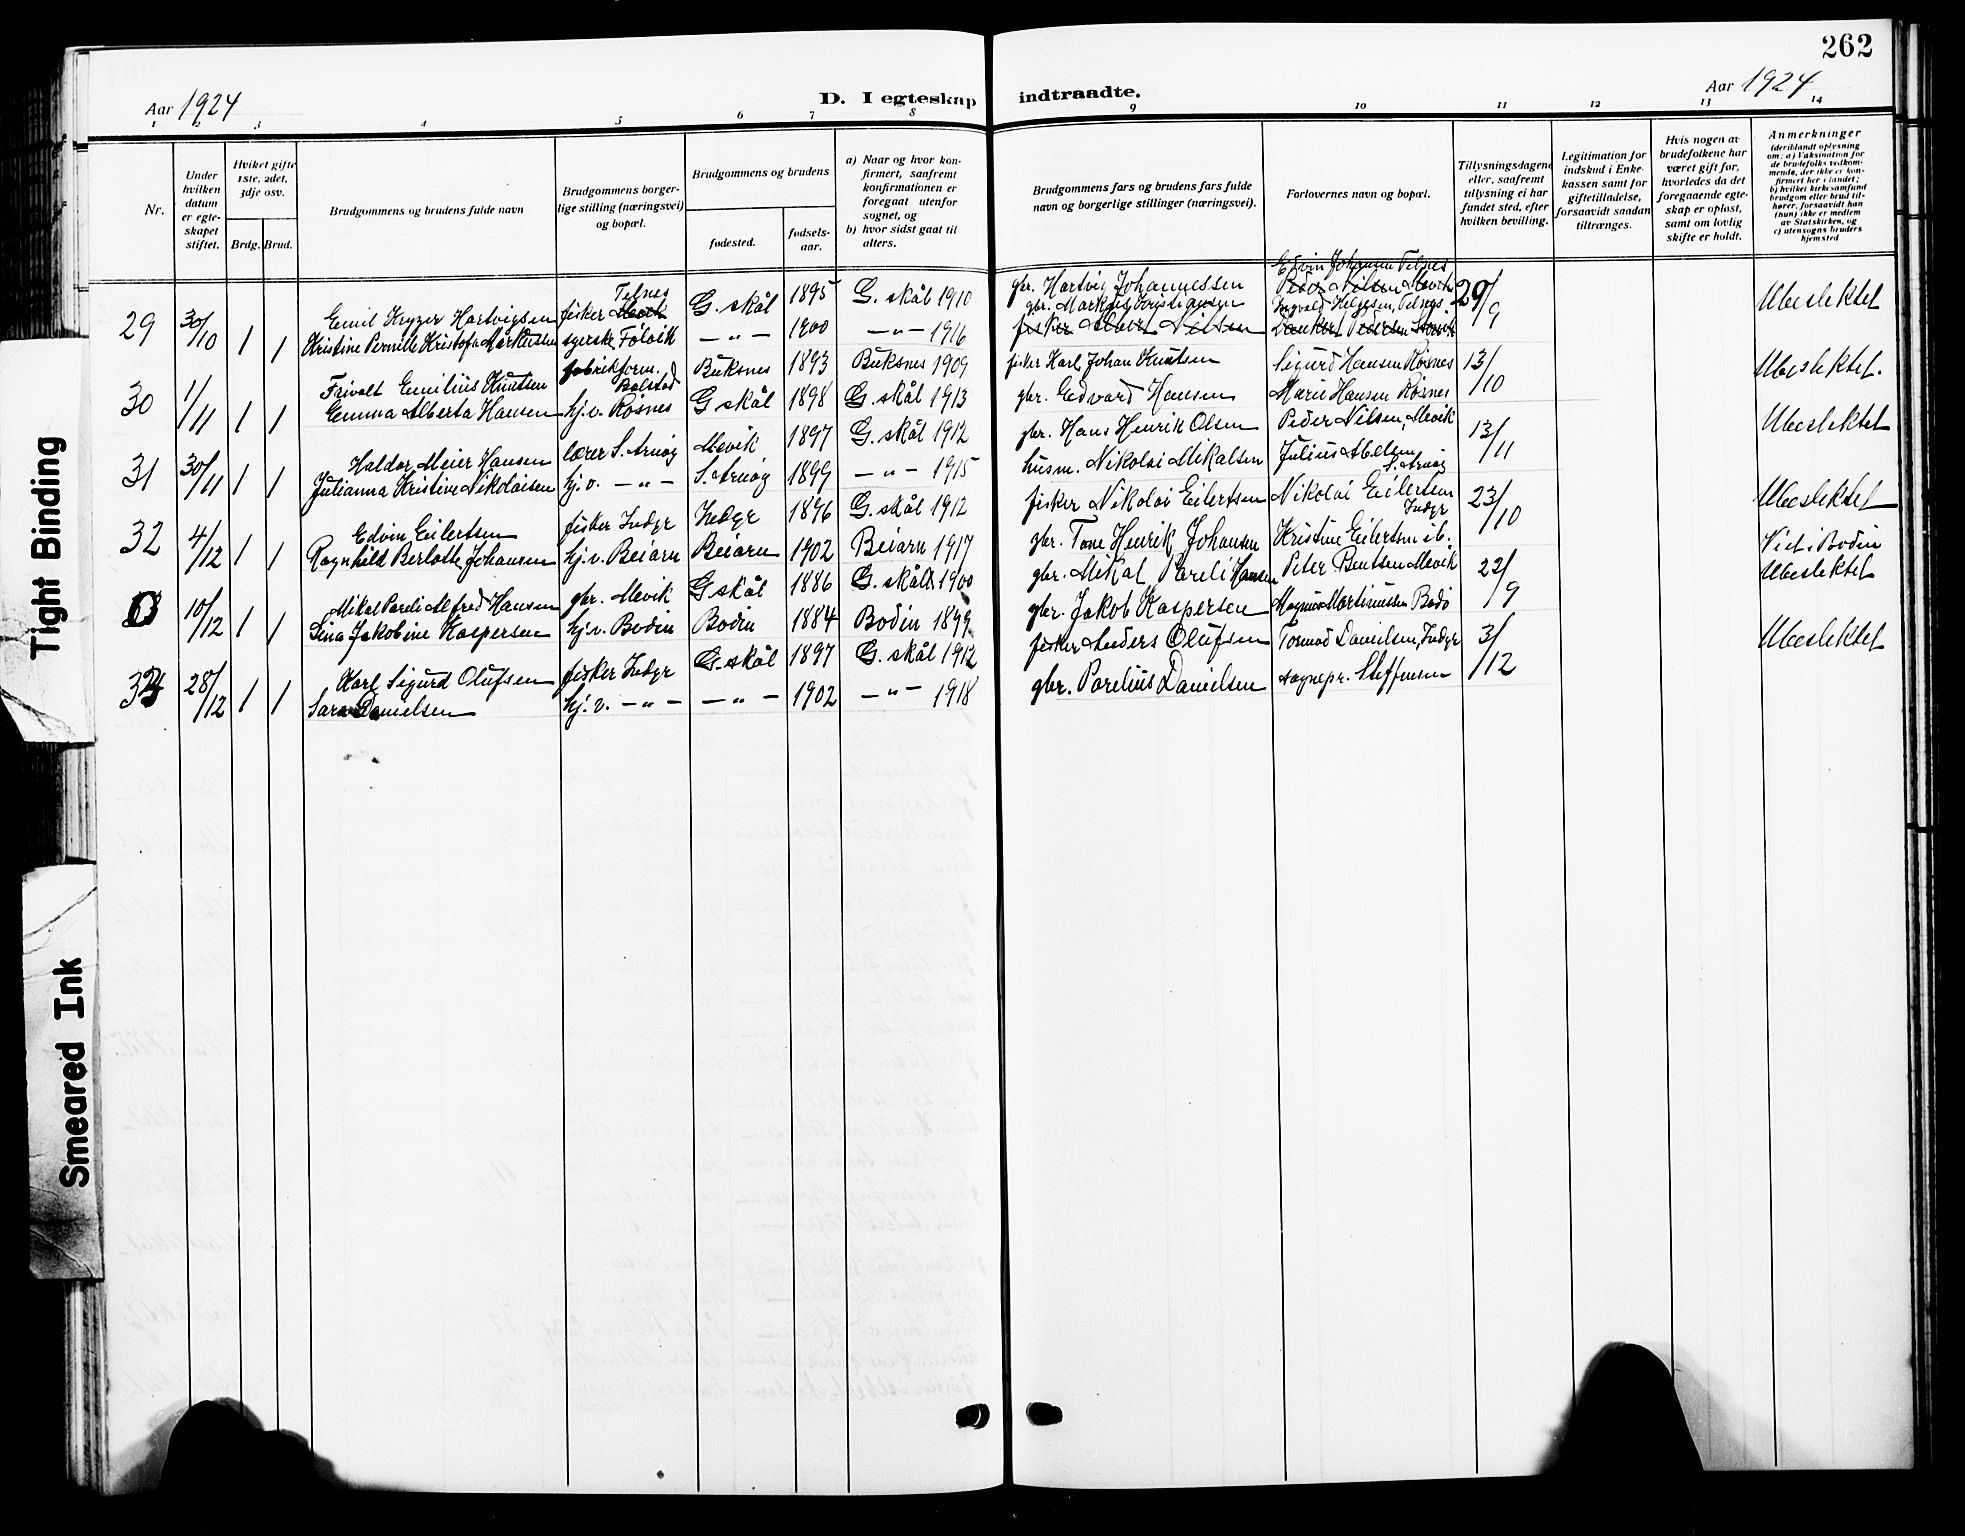 262
Aar 1924
D. I egteskap indtraadte.
Aar 1924
1 2 3 4 5 6 7 8 9 10 11 12 13 14
Nr.
Under hvilken datum er egteskapet stiftet.
Hvilket gifte 1ste, 2det, 3dje osv.
Brdg. Brud.
Brudgommens og brudens fulde navn
Brudgommens borgerlige stilling (næringsvei) og bopæl.
Brudgommens og brudens
fødested.
fødselsaar.
a) Naar og hvor konfirmert, saafremt konfirmationen er foregaat utenfor sognet, og
b) hvor sidst gaat til alters.
Brudgommens fars og brudens fars fulde navn og borgerlige stillinger (næringsvei).
Forlovernes navn og bopæl.
Tillysningsdagene eller, saafremt tillysning ei har fundet sted, efter hvilken bevilling.
Legitimation for indskud i Enkekassen samt for giftetilladelse, forsaavidt saadan tiltrænges.
Hvis nogen av brudefolkene har været gift før, hvorledes da det foregaaende egteskap er opløst, samt om lovlig skifte er holdt.
Anmerkninger
(deriblandt oplysning om: a) Vaksination for de brudefolks vedkommende, der ikke er konfirmert her i landet;
b) hvilket kirkesamfund brudgom eller brud tilhører, forsaavidt han (hun) ikke er medlem av Statskirken, og
c) utensogns bruders hjemsted
29 30/10 1 1 Emil Kryzer Hartvigsen fisker Telnes Mevik G. skål 1895 G. skål 1910 gbr. Hartvig Johannessen Edvin Johansen Telnes Peder Nilsen Mevik 29/9 Ubeslektet
Kristine Pernille Kristofa Markussen syerske Følvik — " — 1900 — " — 1916 gbr. Markus Kristiansen fisker Albert Nilsen Ingvald Helgesen, Telnes Dankert Pedersen
30 1/11 1 1 Frivolt Emilius Knutsen fabrikform. Bolstad Buksnes 1893 Buksnes 1909 fisker Karl Johan Knutsen Sigurd Hansen Røsnes 13/10 Ubeslektet.
Emma Alberta Hansen hj.v. Røsnes G. skål 1898 G. skål 1913 gbr. Edvard Hansen Marie Hansen Røsnes
31 30/11 1 1 Haldor Meier Hansen lærer S. Arnøy Mevik 1897 G. skål 1912 gbr. Hans Henrik Olsen Peder Nilsen, Mevik 13/11 Ubeslektet
Julianna Kristine Nikolaisen hj.v. — " — S. Arnøy 1899 — " — 1915 husm. Nikolai Mikalsen Julius Abelsen S. Arnøy
32 4/12 1 1 Edvin Eilertsen fisker Indyr Indyr 1896 G. skål 1912 fisker Nikolai Eilertsen Nikolai Eilertsen Indyr 23/10 Ubeslektet
Ragnhild Berlotte Johansen hj.v. Beiarn Beiarn 1902 Beiarn 1917 gbr. Tone Henrik Johansen Kristine Eilertsen ib. Viet i Bodin
10/12 1 1 Mikal Pareli Alfred Hansen gbr. Mevik G. skål 1886 G. skål 1900 gbr. Mikal Pareli Hansen Peter Bentsen Mevik 22/9 Ubeslektet
Lina Jakobine Kaspersen hj.v. Bodin Bodin 1884 Bodin 1899 gbr. Jakob Kaspersen Magnus Martinussen Bodø
28/12 1 1 Karl Sigurd Olufsen fisker Indyr G. skål 1897 G. skål 1912 fisker Anders Olufsen Tormod Danielsen, Indyr 3/12 Ubeslektet
Sara Danielsen hj.v. — " — — " — 1902 — " — 1918 gbr. Parelius Danielsen sognepr. Steffensen
Tight Binding
Smeared Ink